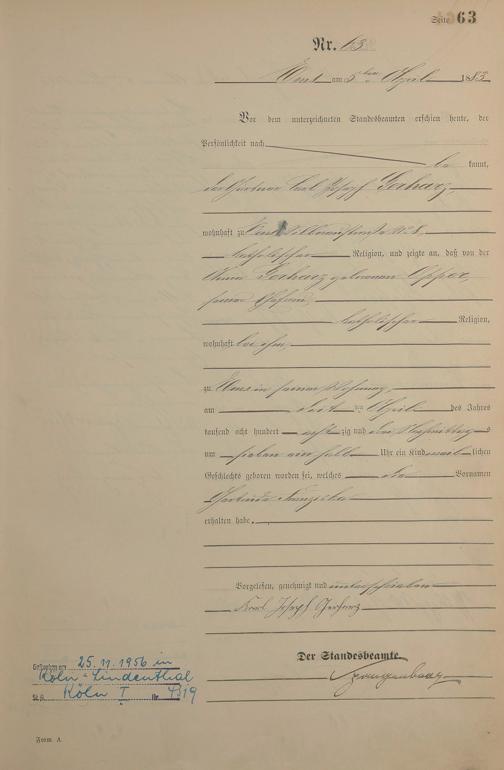 Seite 63
Nr. 63
Ems am 5ten April 1883
Vor dem unterzeichneten Standesbeamten erschien heute, der
Persönlichkeit nach
be kannt,
der Gärtner Carl Joseph Gerharz
wohnhaft zu Ems № 8,
katholischer Religion, und zeigte an, daß von der
Gerharz geborenen
seiner Ehefrau,
katholischer Religion,
wohnhaft bei ihm,
zu Ems in seiner Wohnung,
am ten April des Jahres
tausend acht hundert acht zig und drei Nachmittags
um sieben ein halb Uhr ein Kind lichen
Geschlechts geboren worden sei, welches die Vornamen
erhalten habe.
Vorgelesen, genehmigt und unterschrieben
Karl Joseph Gerharz
Der Standesbeamte.
Gestorben am 25.11.1956 in
Köln-Lindenthal
St.A. Köln I Nr.
Form. A.